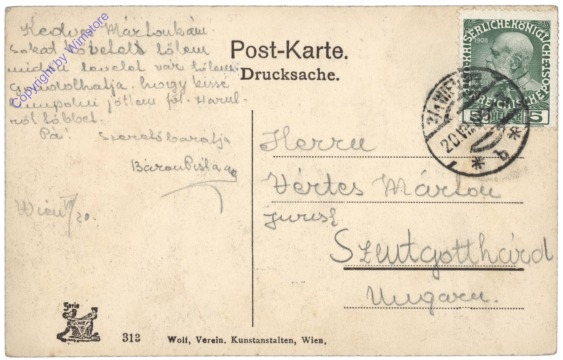 Kedves Mártonkám
sokat követelt tőlem
midőn levelet vár tőlem
Gondolhatja, hogy kissé
jöttem föl.
ről többet.
Pá! Szerető barátja
Báron Pista
Wien VI/20.
Copyright by Winistore
Post-Karte.
Drucksache.
KAISERLICHE KÖNIGLICHE
1908
5 5
WIEN
20.VI
* b *
Herrn
Vértes Márton
jurist
Szentgotthárd
Ungarn.
Serie
312
Wolf, Verein. Kunstanstalten, Wien,